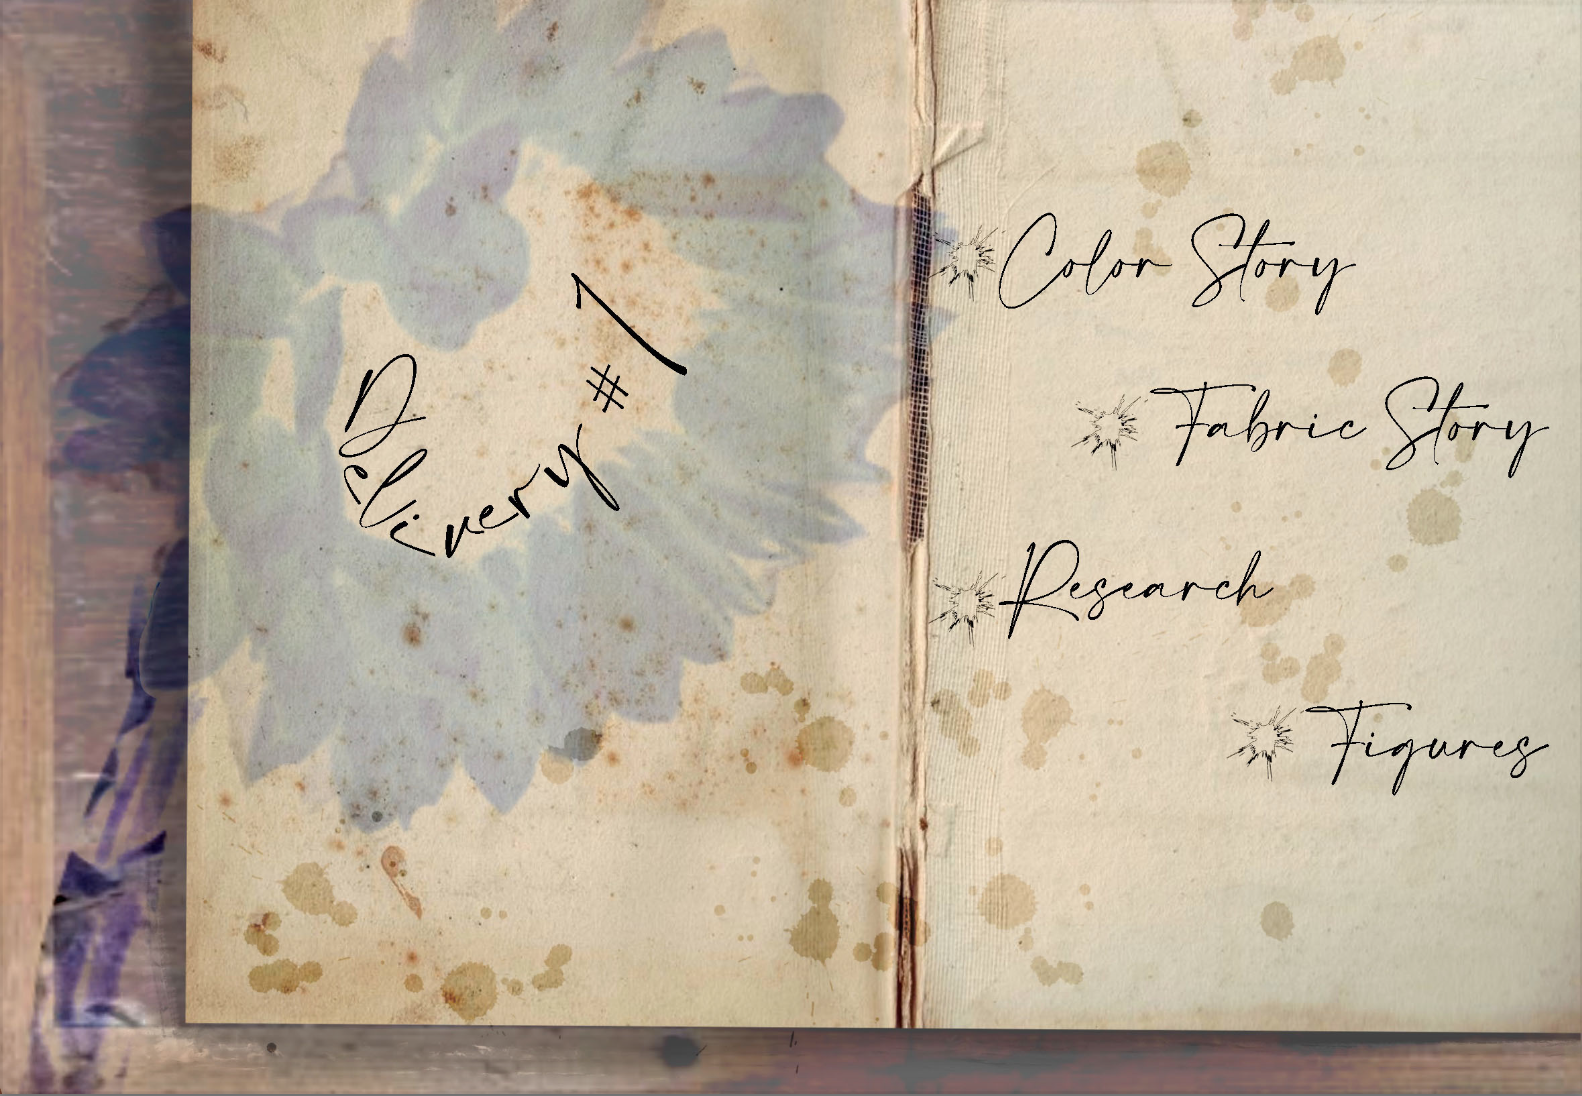 Delivery #1
Color Story
Fabric Story
Research
Figures